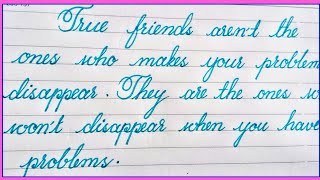 True friends aren't the
ones who makes your problem
disappear. They are the ones w
won't disappear when you have
problems.